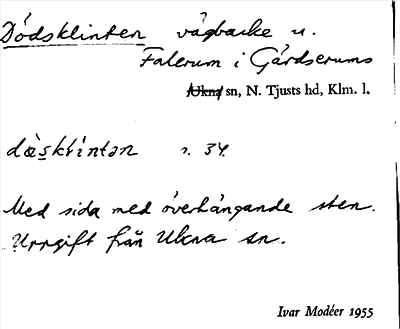 Dödsklinten vägbacke u.
Falerum i Gärdserums
Ukna sn, N. Tjusts hd, Klm. l.
s. 34.
Med sida med överhängande sten.
Uppgift från Ukna sn.
Ivar Modéer 1955